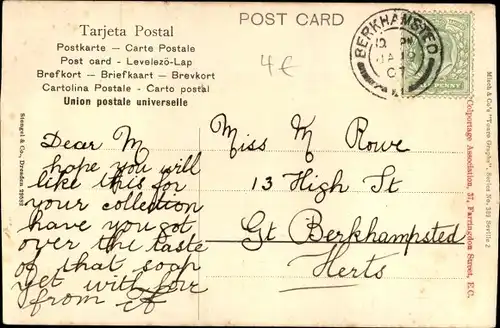 Tarjeta Postal
Postkarte — Carte Postale
Post card — Levelezö-Lap
Brefkort — Briefkaart — Brevkort
Cartolina Postale - Carto postal
Union postale universelle
POST CARD
4€
BERKHAMSTED
JA 19
07
PENNY
Stengel & Co., Dresden
Dear M
hope you will
like this for
your collection
have you got
over the taste
of that soap
yet with luv
from
Miss M Rowe
13 High St
Gt Berkhampsted
Herts
Colportage Association, 37, Farringdon Street, E.C.
Misch & Co's "Tours Graphs", Series No. Seville 2